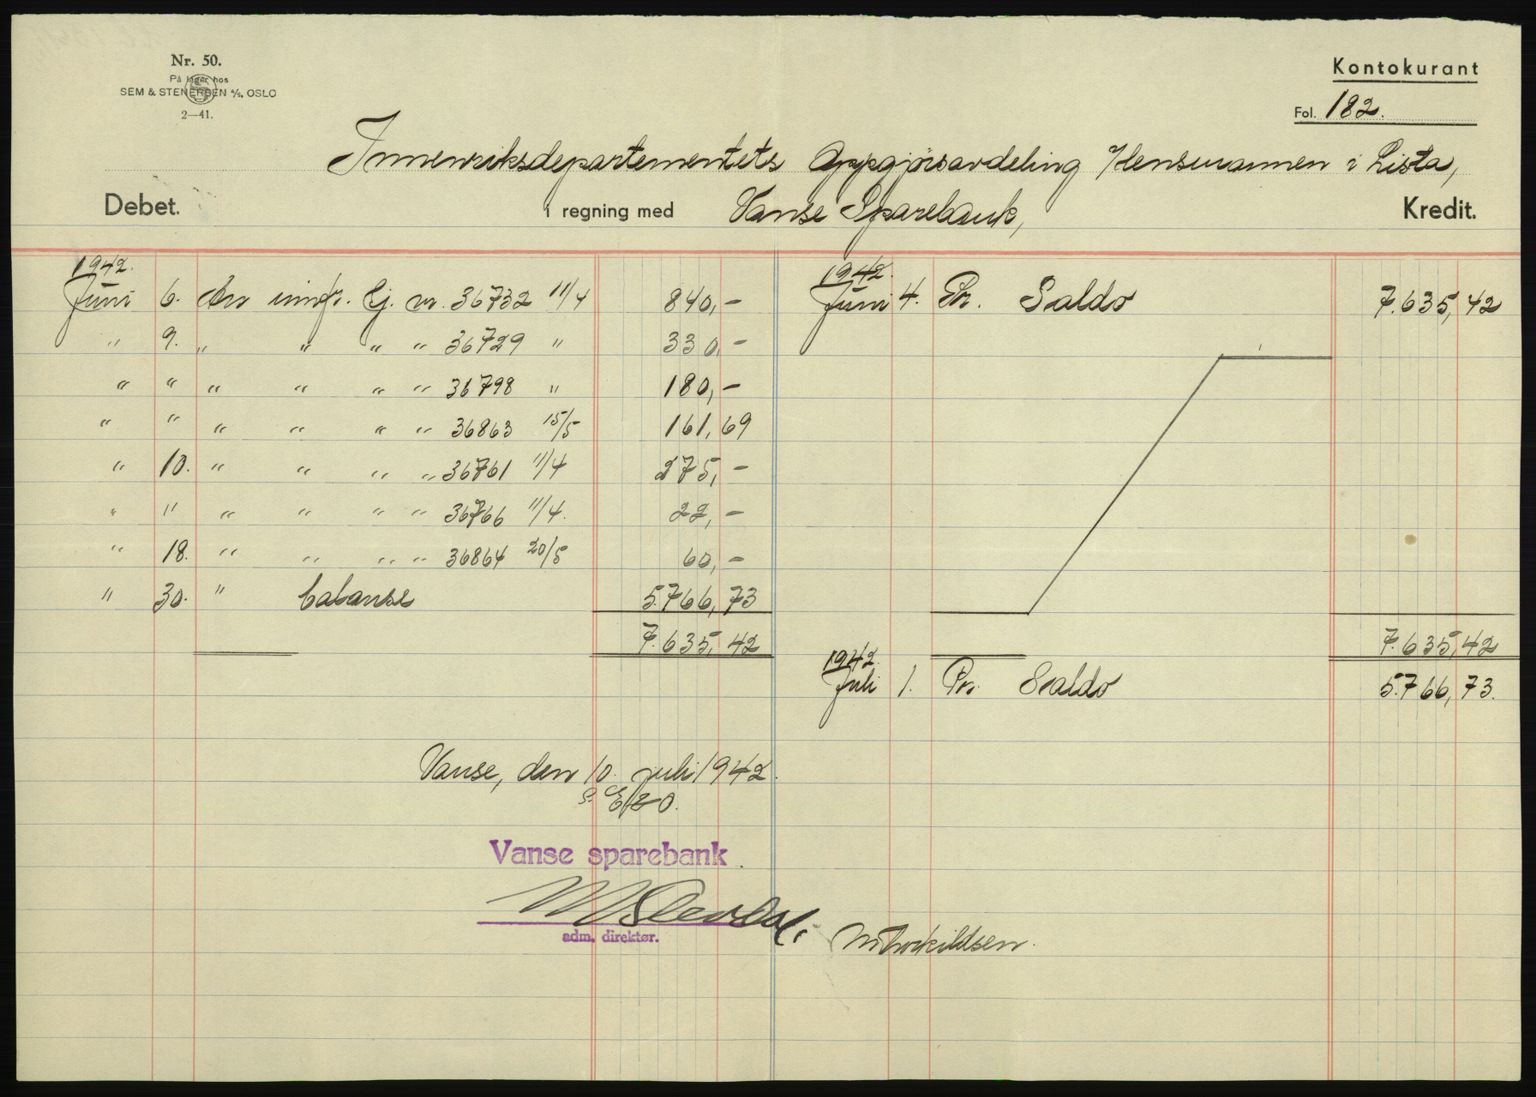 Nr. 50.
På lager hos
SEM & STENERSEN A/S, OSLO
2—41.
Kontokurant
Fol. 182.
Innenriksdepartementets Oppgjørsavdeling v/Lensmannen i Lista,
Debet.
i regning med Vanse Sparebank,
Kredit.
1942.
Juni 6. An innfr. Gj. nr. 36732 11/4 840,-
" 9. " " " " 36729 " 330,-
" " " " " " 36798 " 180,-
" " " " " " 36863 15/5 161,69
" 10. " " " " 36761 11/4 275,-
" " " " " " 36766 11/4. 22,-
" 18. " " " " 36864 20/5 60,-
" 30. " balanse 5.766,73
7.635,42
1942.
Juni 4. Pr. Saldo 7.635,42
7.635,42
1942.
Juli 1. Pr. Saldo 5.766,73.
Vanse, den 10. juli 1942.
Vanse sparebank
adm. direktør.